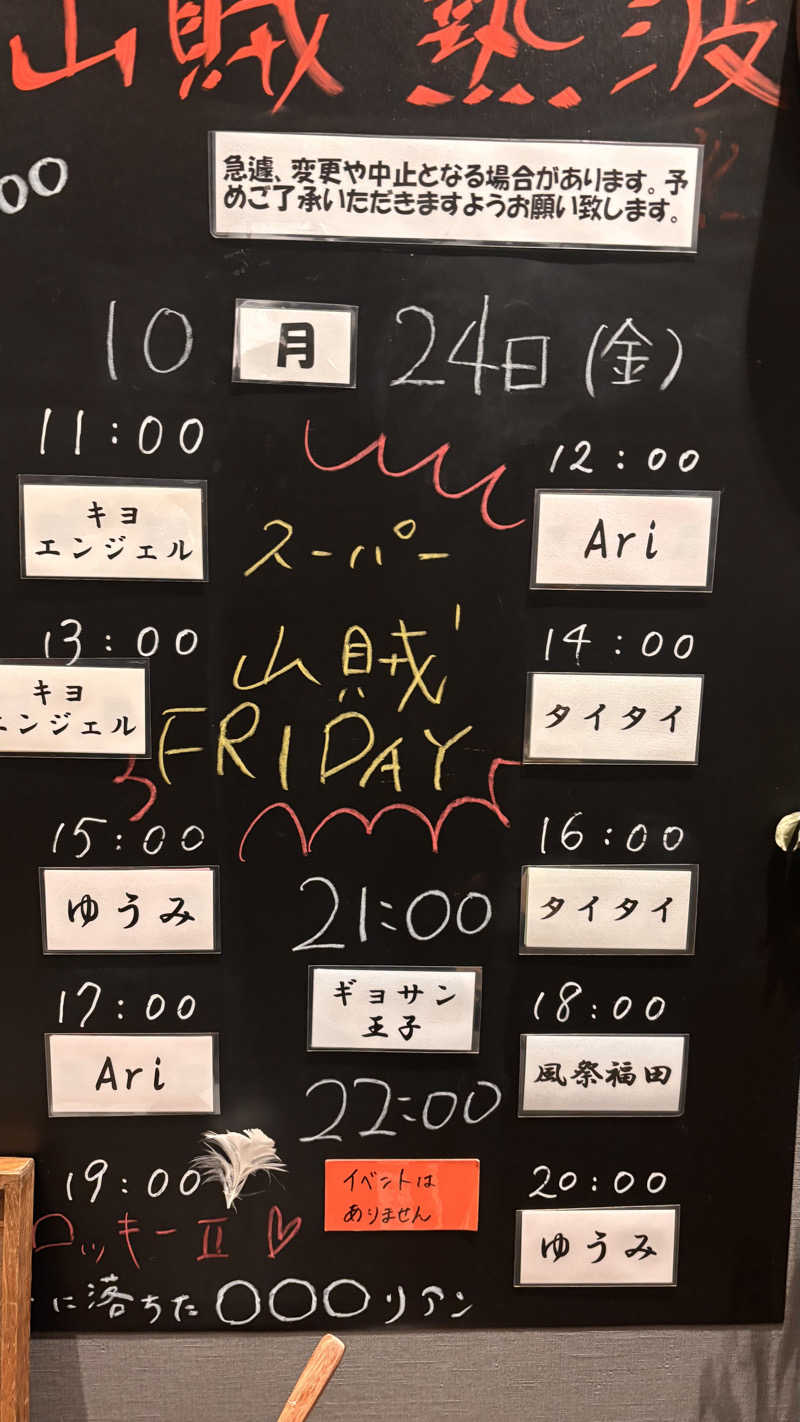 山賊 熱波
00
急遽、変更や中止となる場合があります。予
めご了承いただきますようお願い致します。
10 月 24日(金)
11:00
キヨ
エンジェル
12:00
Ari
スーパー
山賊
FRIDAY
13:00
キヨ
エンジェル
14:00
タイタイ
15:00
ゆうみ
16:00
タイタイ
17:00
Ari
18:00
風祭福田
19:00
ロッキーⅡ♡
20:00
ゆうみ
21:00
ギョサン
王子
22:00
イベントは
ありません
に落ちた〇〇〇リアン